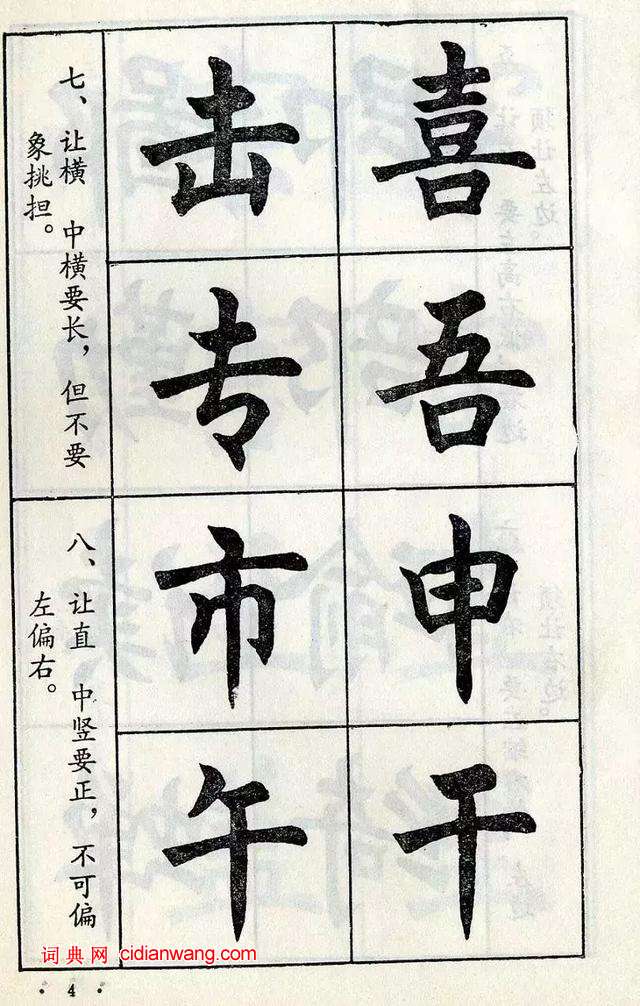 七、让横 中横要长，但不要
象挑担。
击 喜
专 吾
八、让直 中竖要正，不可偏
左偏右。
市 申
午 干
词典网 cidianwang.com
· 4 ·